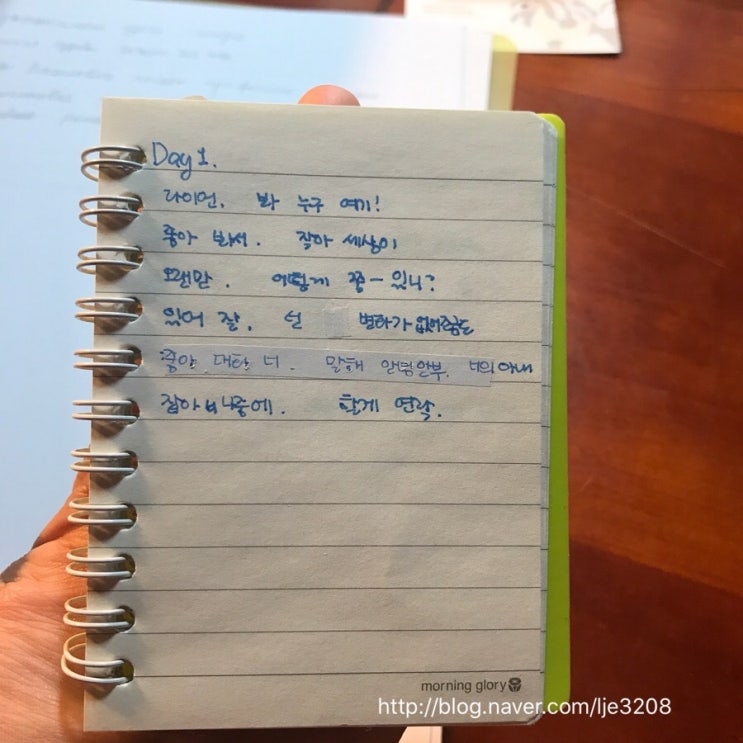 Day 1.
라이언. 봐 누구 여기!
좋아 봐서. 작아 세상이
오랜만. 어떻게 쭝 - 있니?
있어 잘. 넌 변하가 없어조금도
좋아 대화 너. 말해 안부. 너의 아내
잡아 나중에. 할게 연락.
morning glory
http://blog.naver.com/lje3208